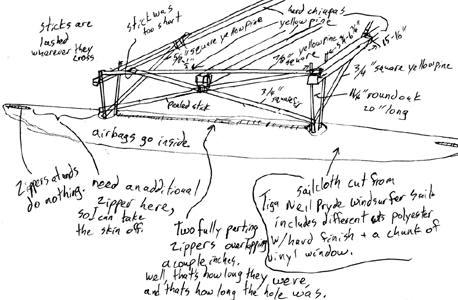 sticks are
lashed
wherever they
cross
stick was
too short
hard chiapas
yellow pine
5/8" square yellow pine
7/8" yellow pine
square
15-16"
3/4" square yellow pine
1 1/4" round oak
20" long
peeled stick
3/4"
square
airbags go inside
Zippers at ends
do nothing.
need an additional
zipper here,
so I can take
the skin off.
Two fully parting
zippers overlapping
a couple inches.
well, that's how long they were,
and that's how long the hole was.
sailcloth cut from
Tiga Neil Pryde windsurfer sails
includes different wts polyester
w/hard finish + a chunk of
vinyl window.